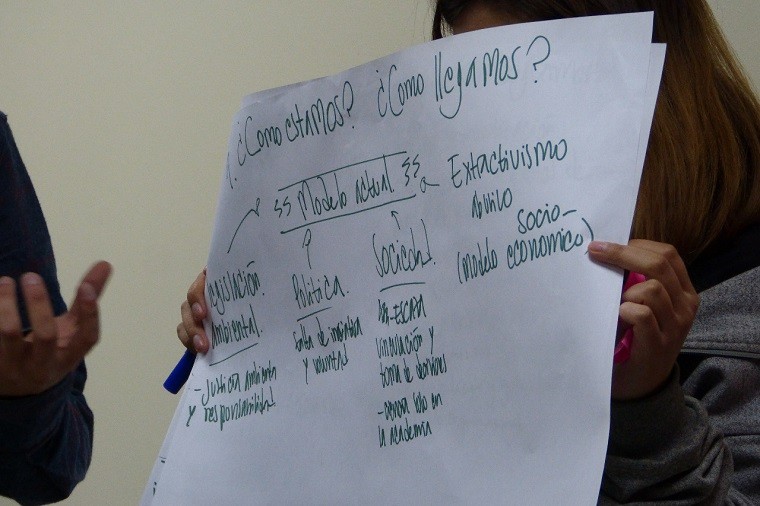 1. ¿Como estamos? ¿Como llegamos?
Modelo actual.
Extractivismo
(modelo socio-
economico)
legislación
Ambiental.
- Justicia ambiental
y responsabilidad
Política.
falta de
y voluntad
Sociedad.
vinculación y
toma de
solo en
la academia